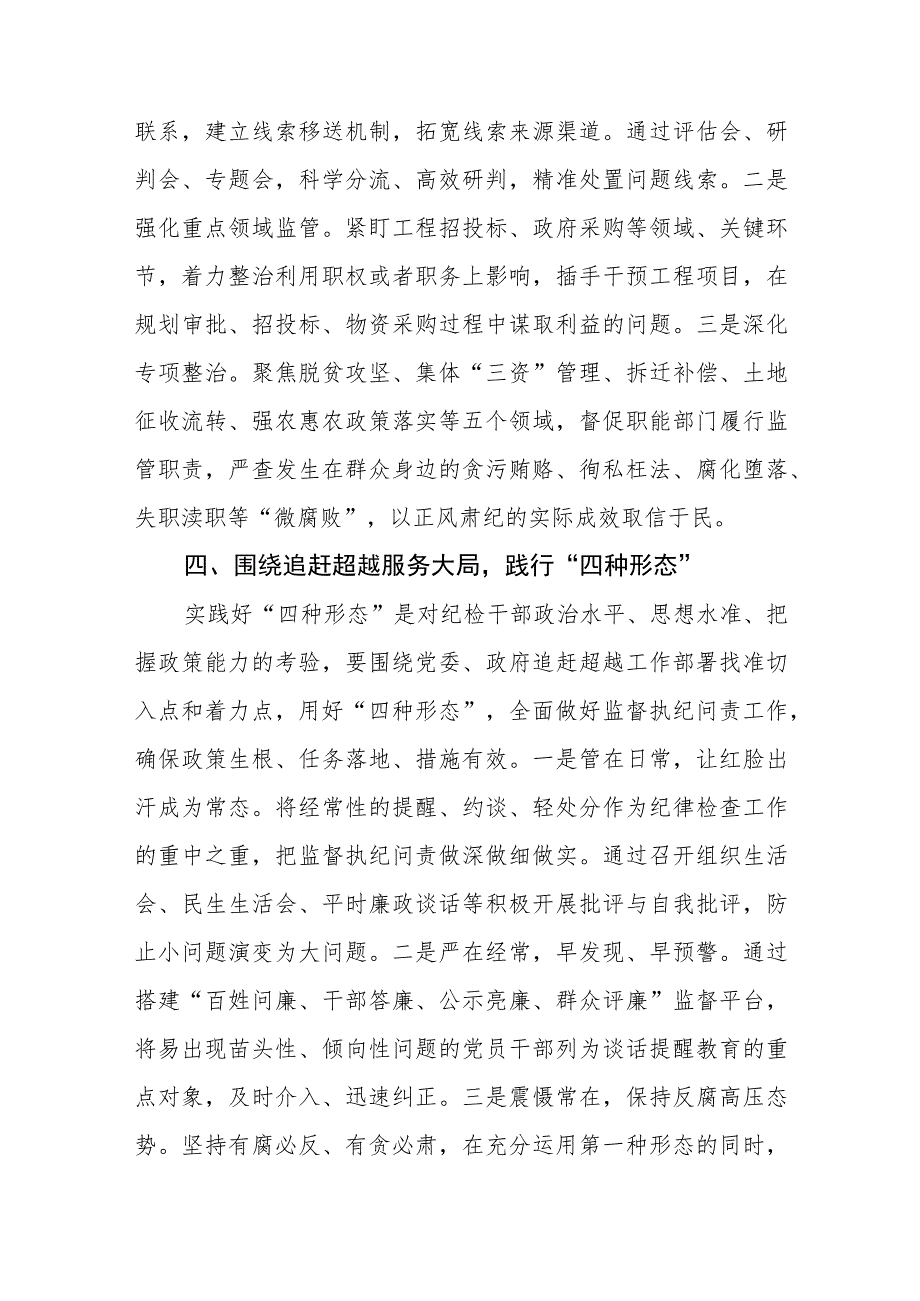 联系，建立线索移送机制，拓宽线索来源渠道。通过评估会、研
判会、专题会，科学分流、高效研判，精准处置问题线索。二是
强化重点领域监管。紧盯工程招投标、政府采购等领域、关键环
节，着力整治利用职权或者职务上影响，插手干预工程项目，在
规划审批、招投标、物资采购过程中谋取利益的问题。三是深化
专项整治。聚焦脱贫攻坚、集体“三资”管理、拆迁补偿、土地
征收流转、强农惠农政策落实等五个领域，督促职能部门履行监
管职责，严查发生在群众身边的贪污贿赂、徇私枉法、腐化堕落、
失职渎职等“微腐败”，以正风肃纪的实际成效取信于民。
四、围绕追赶超越服务大局，践行“四种形态”
实践好“四种形态”是对纪检干部政治水平、思想水准、把
握政策能力的考验，要围绕党委、政府追赶超越工作部署找准切
入点和着力点，用好“四种形态”，全面做好监督执纪问责工作，
确保政策生根、任务落地、措施有效。一是管在日常，让红脸出
汗成为常态。将经常性的提醒、约谈、轻处分作为纪律检查工作
的重中之重，把监督执纪问责做深做细做实。通过召开组织生活
会、民生生活会、平时廉政谈话等积极开展批评与自我批评，防
止小问题演变为大问题。二是严在经常，早发现、早预警。通过
搭建“百姓问廉、干部答廉、公示亮廉、群众评廉”监督平台，
将易出现苗头性、倾向性问题的党员干部列为谈话提醒教育的重
点对象，及时介入、迅速纠正。三是震慑常在，保持反腐高压态
势。坚持有腐必反、有贪必肃，在充分运用第一种形态的同时，